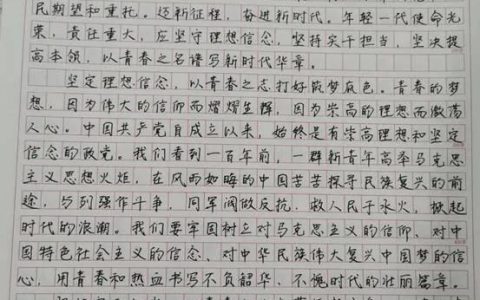 民期望和重托。迈新征程,奋进新时代。年轻一代使命光
荣,责任重大,应坚守理想信念,坚持实干担当,坚决提
高本领,以青春之名谱写新时代华章。
坚定理想信念,以青春之志打好筑梦底色。青春的梦
想,因为伟大的信仰而熠熠生辉,因为崇高的理想而激荡
人心。中国共产党自成立以来,始终是有崇高理想和坚定
信念的政党。我们看到一百年前,一群新青年高举马克思
主义思想火炬,在风雨如晦的中国苦苦探寻民族复兴的前
途,与列强作斗争,同军阀做反抗,救人民于水火,掀起
时代的浪潮。我们要牢固树立对马克思主义的信仰,对中
国特色社会主义的信念,对中华民族伟大复兴中国梦的信
心,用青春和热血书写不负韶华、不愧时代的壮丽篇章。